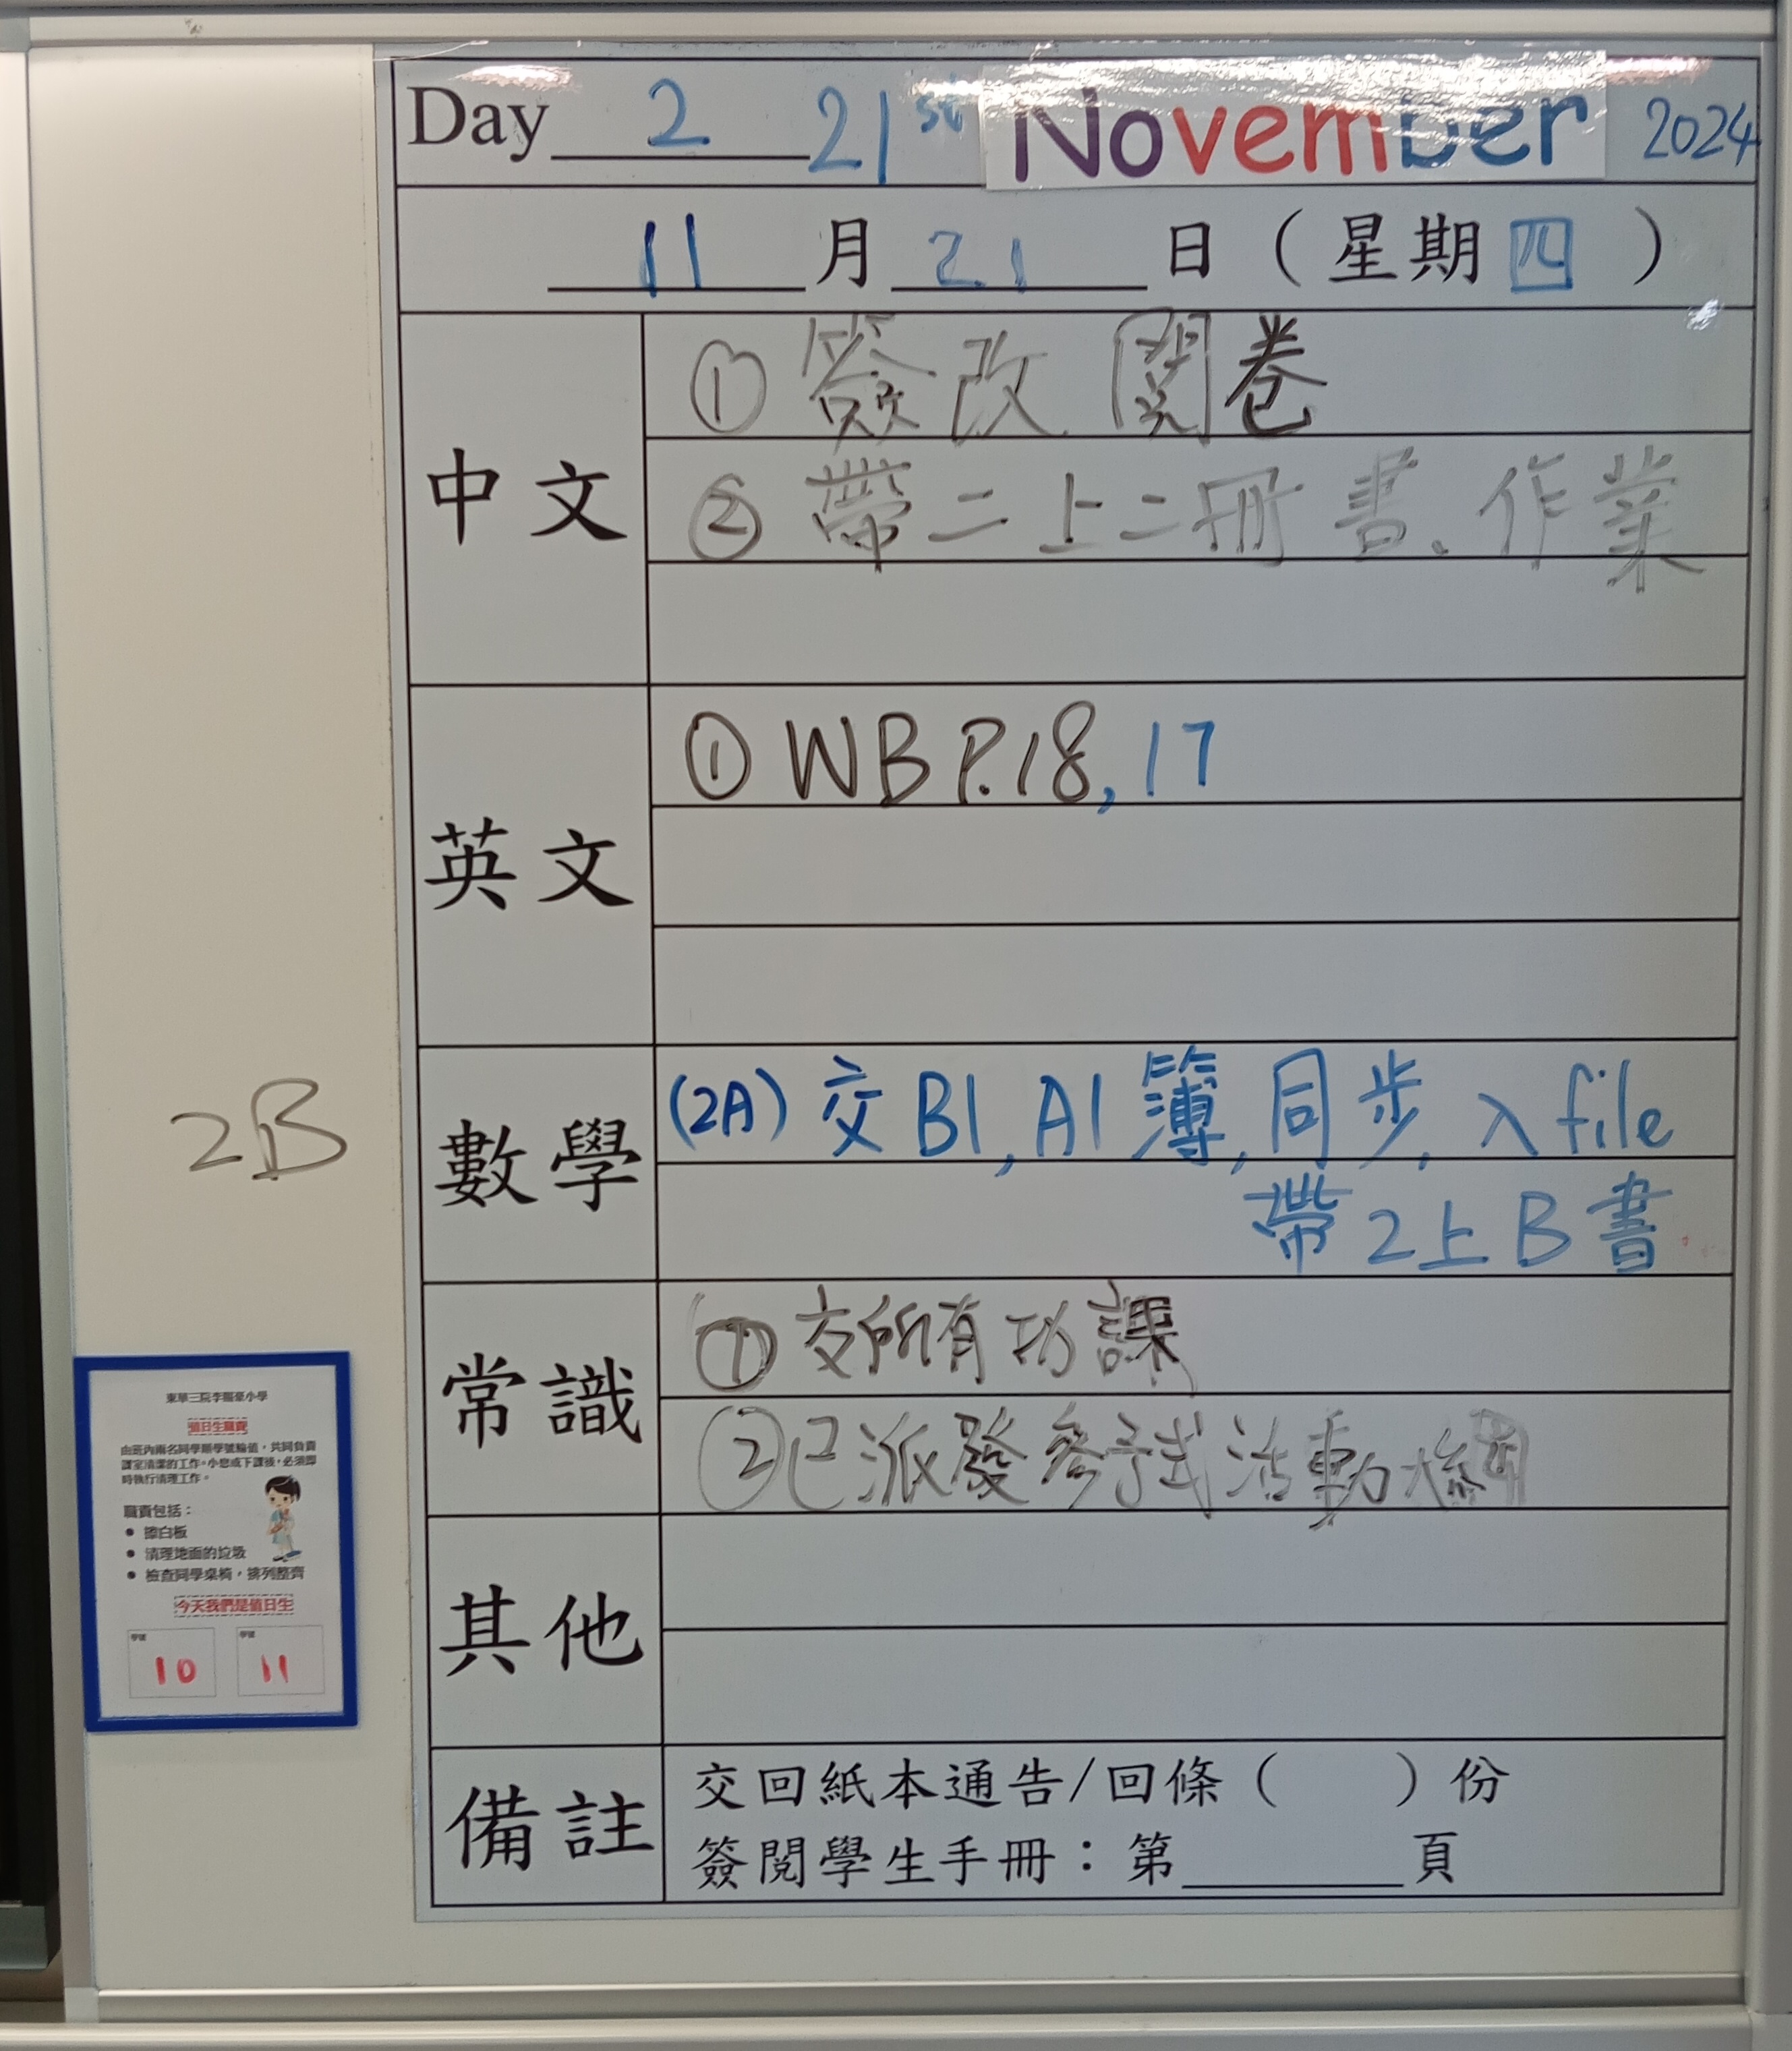 Day 2 21st November 2024
11 月 21 日 ( 星期 四 )
中文
① 簽改 閱卷
② 帶二上二冊書、作業
英文
① WB P.18, 17
數學
(2A) 交 B1, A1 簿, 同步, 入 file
帶 2上B 書
常識
① 交所有功課
② 已派發 活動
其他
備註
交回紙本通告/回條 ( ) 份
簽閱學生手冊：第 頁
2B
值日生職責
由班內兩名同學順學號輪值，共同負責
課室清潔的工作。小息或下課後，必須即
時執行清理工作。
職責包括：
• 擦白板
• 清理地面的垃圾
• 檢查同學桌椅，排列整齊
今天我們是值日生
學號 學號
10 11